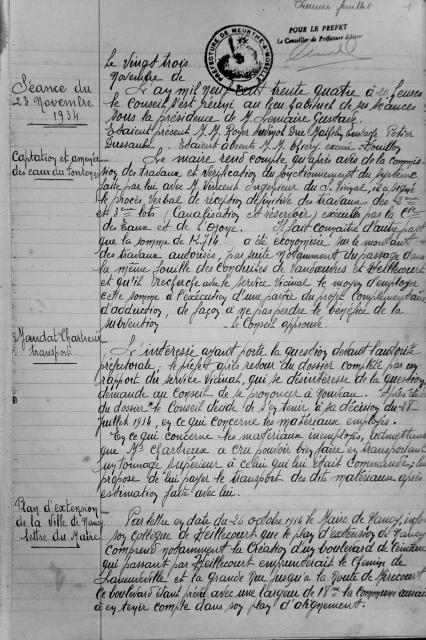 Premier feuillet
PREFECTURE DE MEURTHE & MOSELLE
POUR LE PREFET
Le Conseiller de Préfecture délégué
Séance du
23 Novembre
1934
le Vingt trois
Novembre de
L'an mil neuf cent trente quatre à 20 heures
le Conseil s'est réuni au lieu habituel de ses séances
sous la présidence de M. Lemaire Gustave.
Etaient présent M.M. Royer Potier
Etaient absent M.M. Thiery excusé
Captation et amenée
des eaux du
Le maire rend compte qu'après avis de la commis-
sion des travaux et vérification du fonctionnement du système
faite par lui avec M. Vincent Ingénieur du S. Vicinal, il a signé
le procès verbal de réception définitive des travaux des 2ème
et 3ème lots (Canalisation et réservoir) exécutés par la Cie
de Eaux et de l'Ozone. Il fait connaître d'autre part
que la somme de a été économisée sur le montant
des travaux autorisés, par suite notamment du passage dans
la même fouille des conduites de Vandoeuvre et Heillecourt
et qu'il recherche avec le service Vicinal le moyen d'employer
cette somme à l'exécution d'une partie du projet complémentaire
d'adduction, de façon à ne pas perdre le bénéfice de la
subvention - le Conseil approuve.
Mandat Chartreux
transport
L'intéressé ayant porté la question devant l'autorité
préfectorale, le préfet après retour du dossier complété par un
rapport du service Vicinal, qui se désintéresse de la question
demande au Conseil de se prononcer à nouveau. Après étude
du dossier le Conseil décide de s'en tenir à sa décision du 28
Juillet 1934, en ce qui concerne les matériaux employés.
En ce qui concerne les matériaux inemployés, admettant
que Mr Chartreux a cru pouvoir bien faire en transportant
un tonnage supérieur à celui qui lui était commandé; il
propose de lui payer le transport des dits matériaux après
estimation faite avec lui.
Plan d'extension
de la Ville de Nancy
lettre du Maire
Par lettre en date du 26 octobre 1934 le Maire de Nancy, informe
son collègue de Heillecourt que le plan d'extension de Nancy
comprend notamment la Création d'un boulevard de Ceinture
qui passant par Heillecourt emprunterait le Chemin de
Laneuveville et la grande Rue jusqu'à la Route de Mirecourt
ce boulevard étant prévu avec une largeur de 18m la commune aurait
à en tenir compte dans son plan d'alignement.